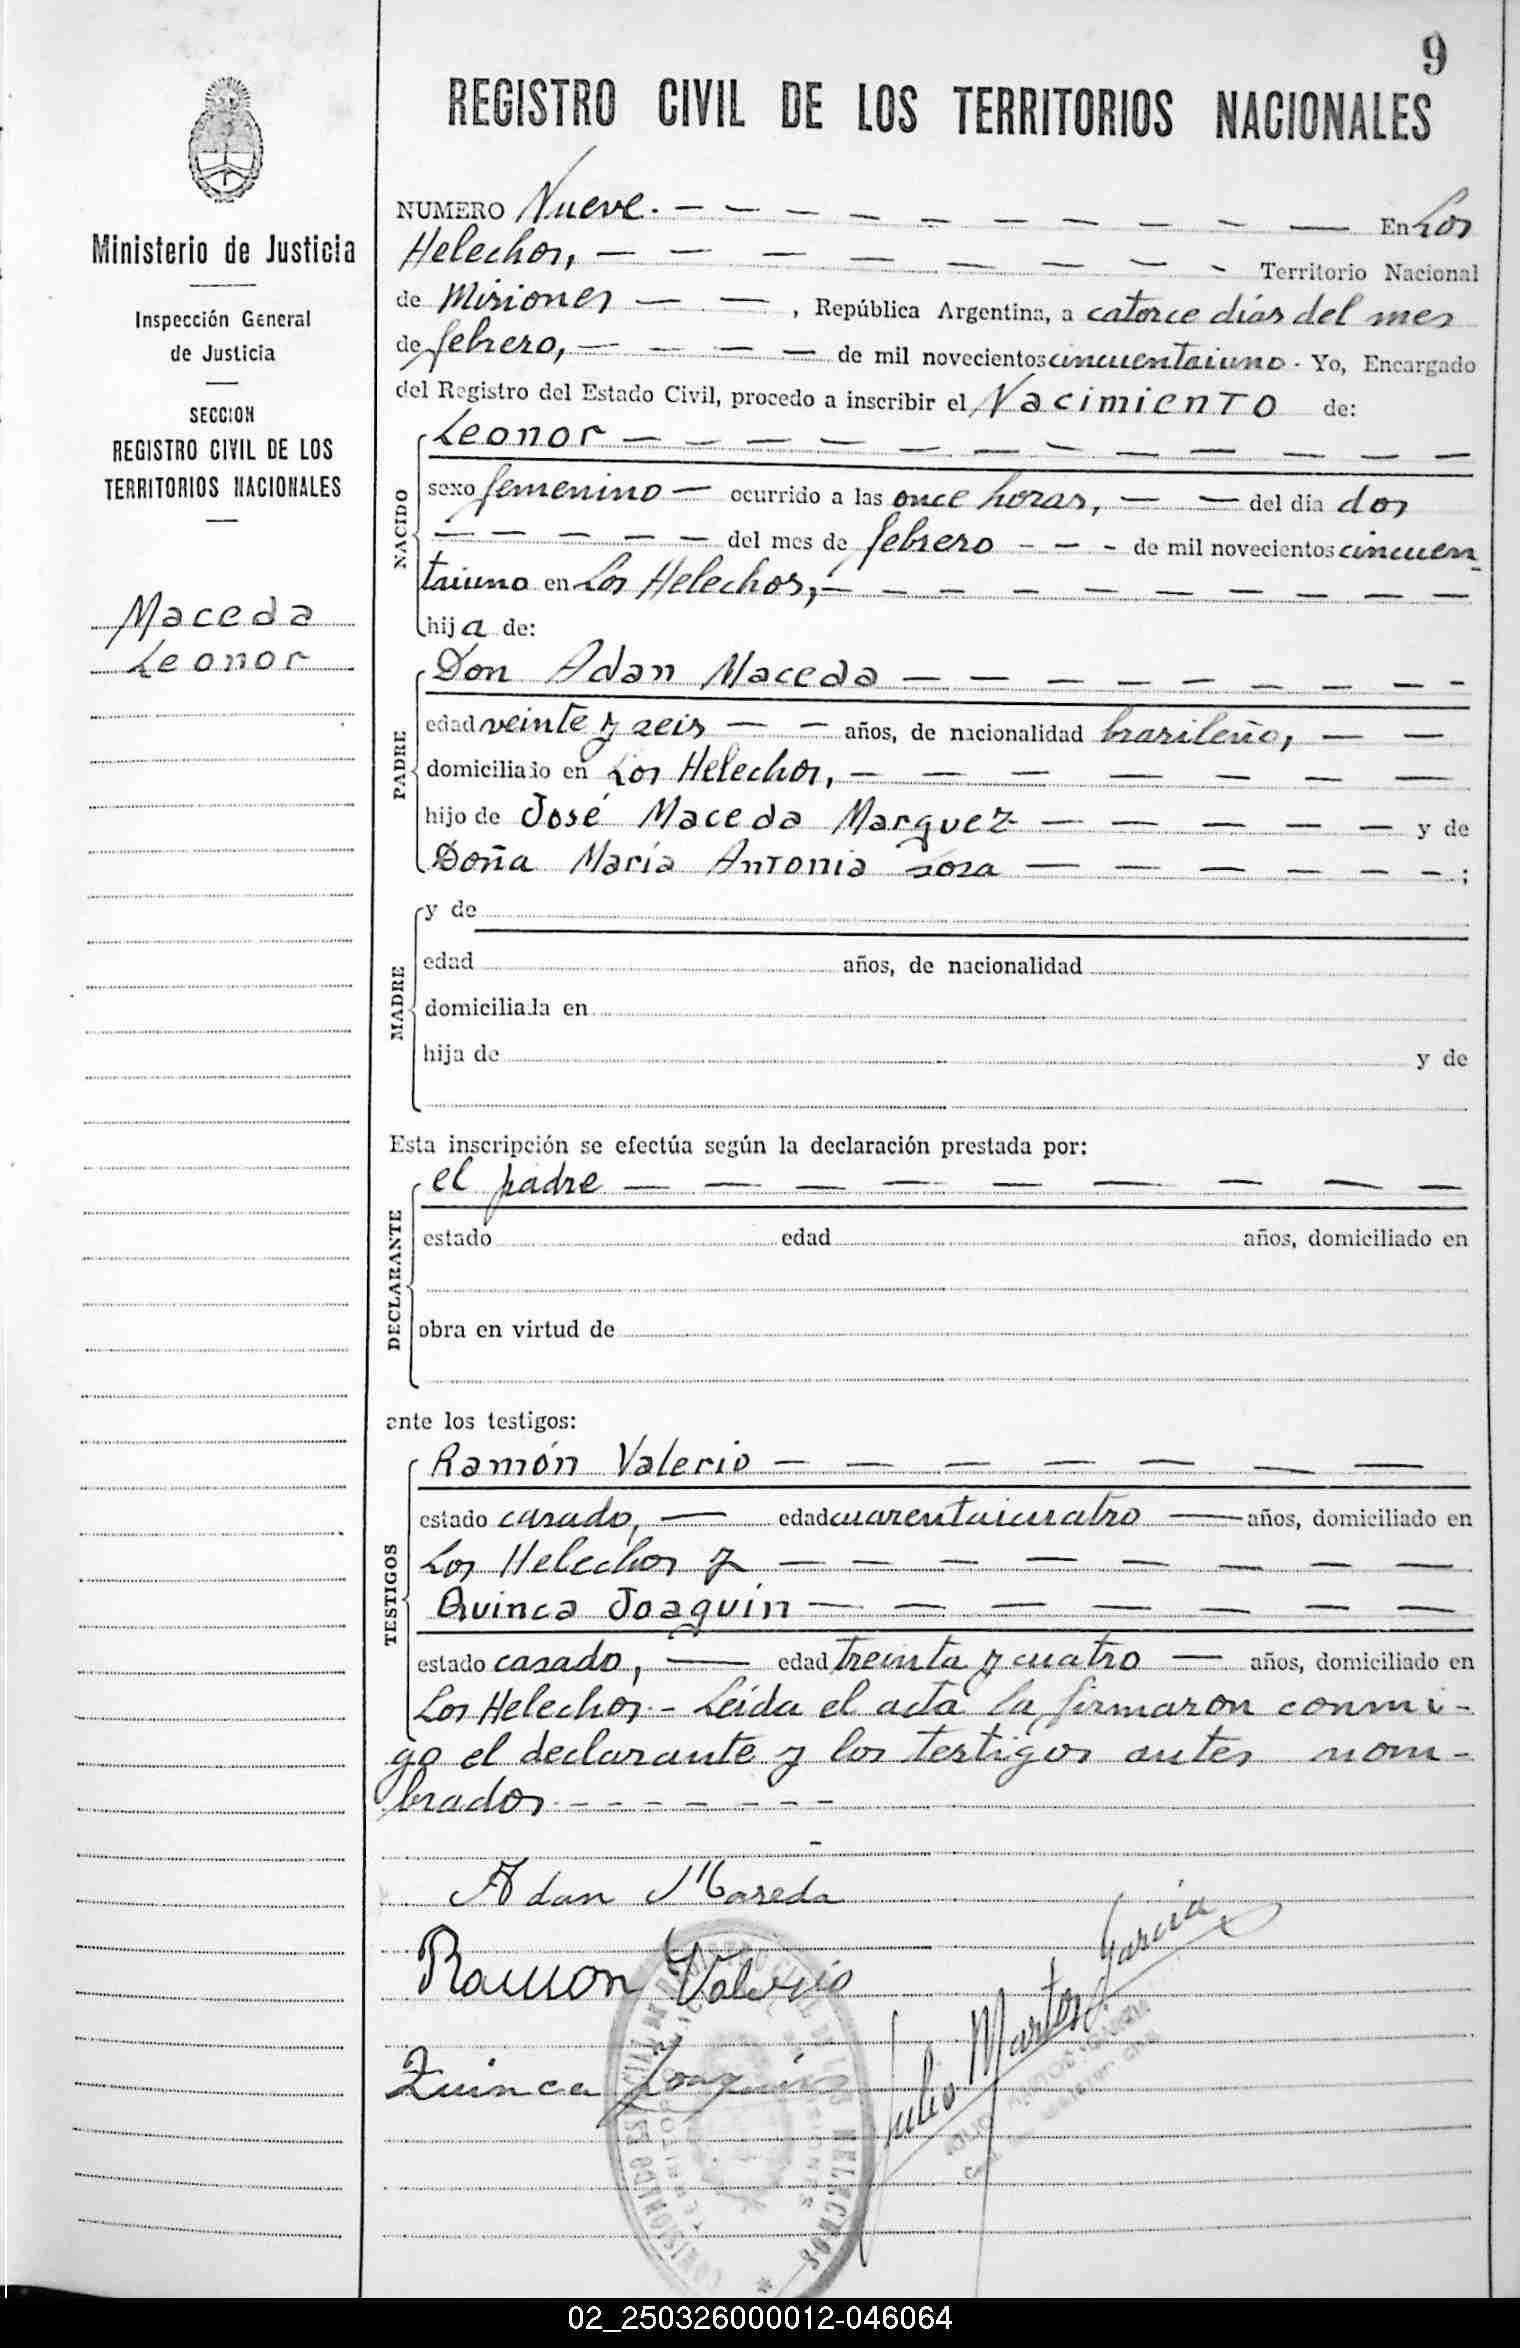 9
REGISTRO CIVIL DE LOS TERRITORIOS NACIONALES
Ministerio de Justicia
Inspección General
de Justicia
SECCION
REGISTRO CIVIL DE LOS
TERRITORIOS NACIONALES
Maceda
Leonor
NUMERO Nueve. - - - - - - - - - - En Los
Helechos, - - - - - - - - - Territorio Nacional
de Misiones - - , República Argentina, a catorce días del mes
de febrero, - - - - de mil novecientos cincuentaiuno. Yo, Encargado
del Registro del Estado Civil, procedo a inscribir el Nacimiento de:
NACIDO
Leonor - - - - - - - - - - -
sexo femenino - ocurrido a las once horas, - - del día dos
- - - - - del mes de febrero - - - de mil novecientos cincuen
taiuno en Los Helechos, - - - - - - - - - -
hija de:
PADRE
Don Adan Maceda - - - - - - - - -
edad veinte y seis - - años, de nacionalidad brasileño, - -
domiciliado en Los Helechos, - - - - - - -
hijo de José Maceda Marquez - - - - - y de
Doña María Antonia Sosa - - - - - - - ;
MADRE
y de
edad años, de nacionalidad
domiciliada en
hija de y de
Esta inscripción se efectúa según la declaración prestada por:
DECLARANTE
el padre - - - - - - - - -
estado edad años, domiciliado en
obra en virtud de
ante los testigos:
TESTIGOS
Ramón Valerio - - - - - - -
estado casado, - edad cuarentaicuatro - años, domiciliado en
Los Helechos y - - - - - - - -
Quinca Joaquin - - - - - - - -
estado casado, - edad treinta y cuatro - años, domiciliado en
Los Helechos.- Leída el acta la firmaron conmi-
go el declarante y los testigos antes nom-
brados - - - - - - -
Adan Maseda
Ramon Valerio
Quinca Joaquin
Julio Martos Garcia
JULIO MARTOS GARCIA
02_250326000012-046064